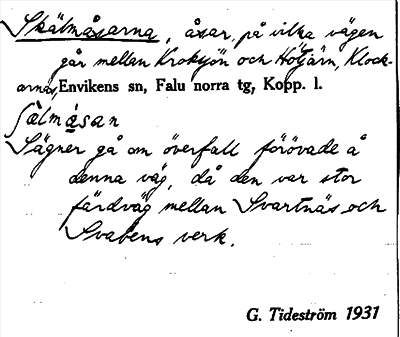 Skälmåsarna, åsar, på vilka vägen
går mellan Kroksjön och Hötjärn, Klock-
arnäs, Envikens sn, Falu norra tg, Kopp. l.
ʃælmåsan
Sägner gå om överfall förövade å
denna väg, då den var stor
färdväg mellan Svartnäs och
Svabens verk.
G. Tideström 1931